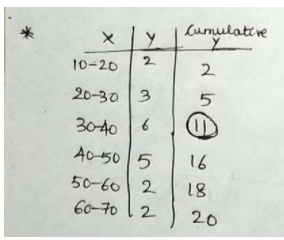 * X Y Cumulative Y
10-20 2 2
20-30 3 5
30-40 6 11
40-50 5 16
50-60 2 18
60-70 2 20